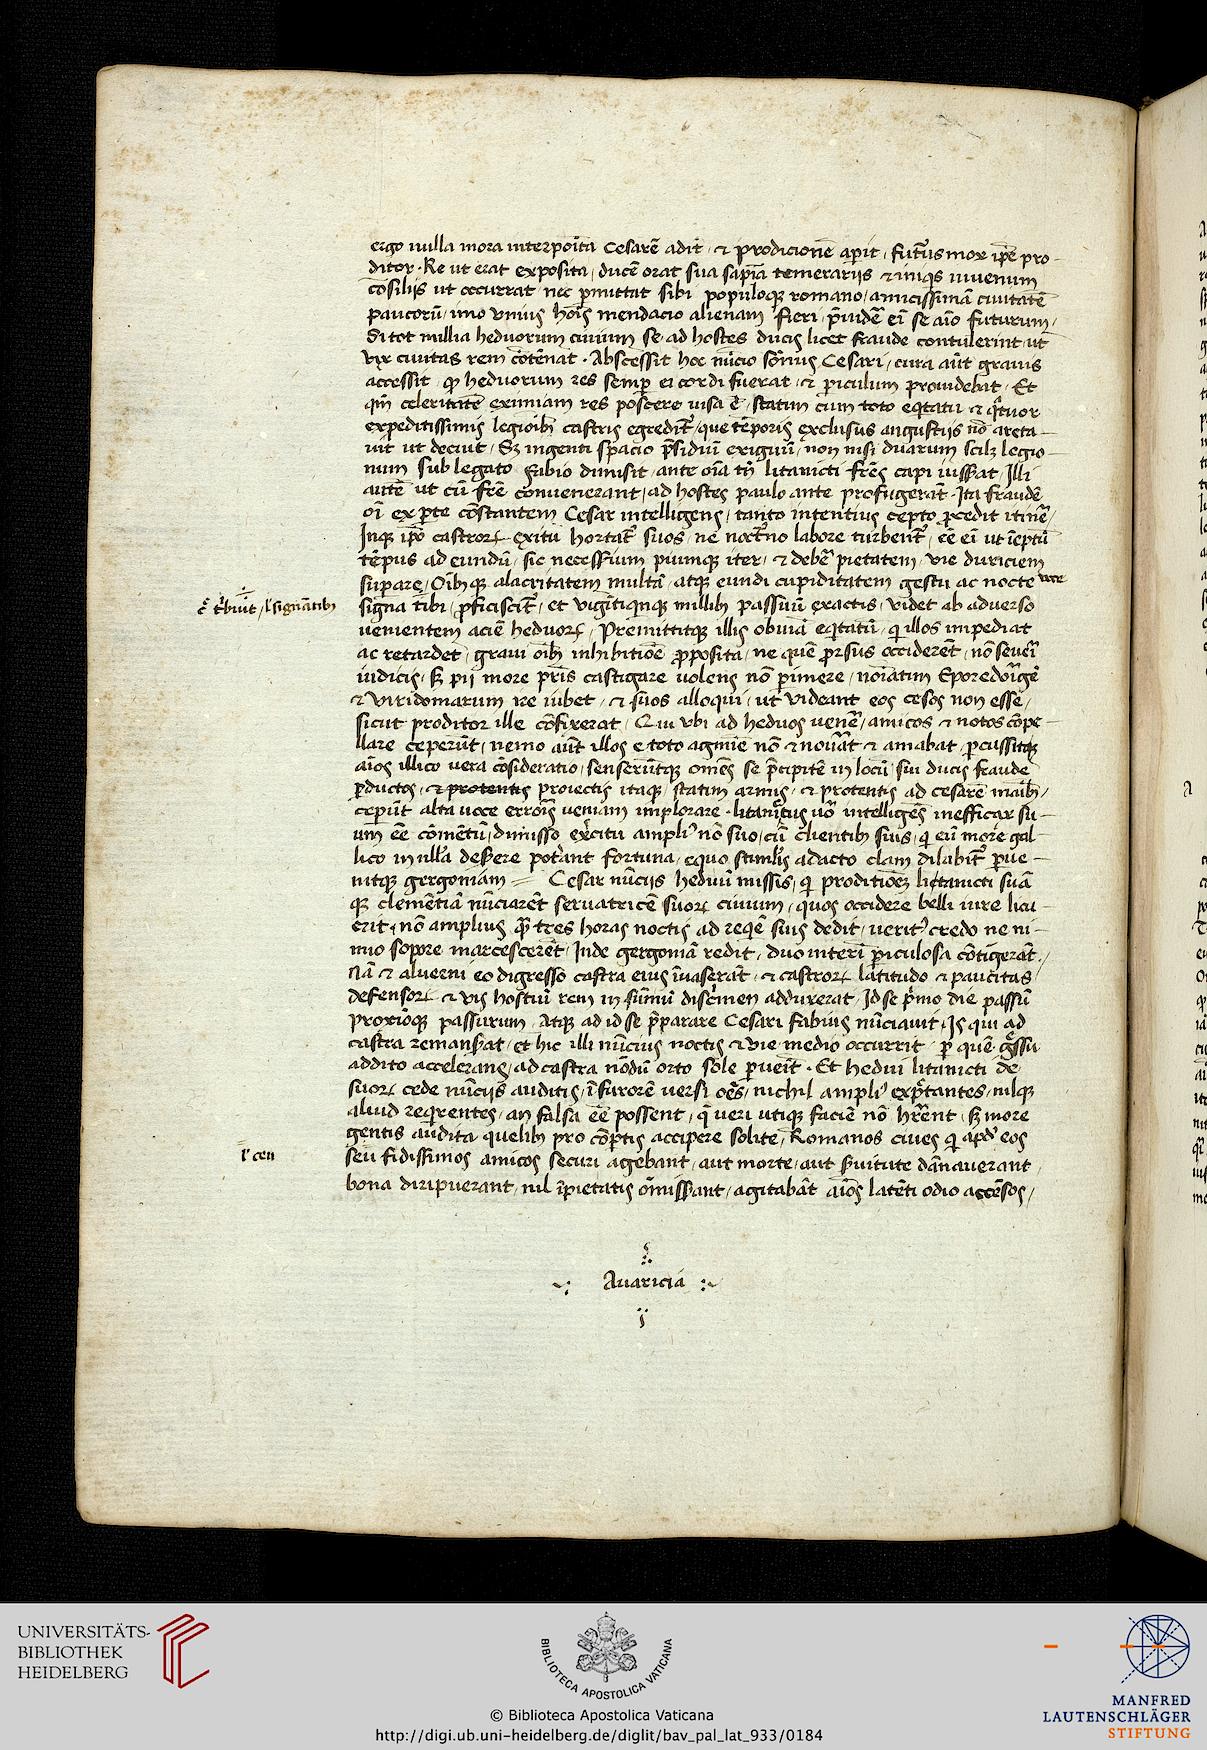 ergo nulla mora interpoīta Cesarē adit / ⁊ prodicionē aꝑit / futꝰus mox ip̄e pro-
ditor · Re ut erat exposita / ducē orat sua sapīa temerarijs ⁊ iniq̄s iuuenum
cōsilijs ut occurrat nec ꝑmittat sibi populoqꝫ romano / amicissimā ciuitatē
paucorū / imo vnius hoīs mendacio alienam fieri / p̄uidē eī se aīo futurum /
Si tot millia heduorum ciuium se / ad hostes ducis licet fraude contulerint / ut
vix ciuitas rem cōtēnat · Abscessit hoc nūcio sōnius Cesari / cura aūt grauis
accessit / qꝫ heduorum res semꝑ ei cordi fuerat / ⁊ ꝑiculum prouidebat · Et
qm̄ celeritatē eximiam res poscere uisa ē / statim cum toto eq̄tatu ⁊ q̄tuor
expeditissimis legioībꝫ castris egredit᷑ / que tēporis exclusus angustijs nō arcta-
uit ut decuit / Sꝫ ingenti spacio p̄sidiū exiguū / non nisi duarum scilꝫ legio-
num sub legato Fabio dimisit / ante oīa tn̄ litauicti fr̄es capi iusserat / Illi
autē ut cū fr̄e conuenerant / ad hostes paulo ante profugerāt · Ita fraudē
oī ex ꝑte cōstantem Cesar intelligens / tanto intentius cepto ꝓcedit itinē /
Inqꝫ ip̄o castroꝝ exitu hortat᷑ suos / ne noct᷑no labore turbent᷑ / eē eī ut īceptū
tēpus ad eundū / sic necessium piumqꝫ iter / ⁊ debē pietatem / vie duriciem
suꝑare / Oībꝫqꝫ alacritatem multā / atqꝫ eundi cupiditatem gestu ac nocte uoce
signa tībi / ꝓficiscit᷑ / et vigītiqinqꝫ millibꝫ passuū exactis / videt ab aduerso
l' signātibꝫ
uenientem aciē heduoꝝ / Premittitqꝫ illis obuiā eq̄tatū / qi illos impediat
ac retardet / graui oībꝫ inhibitiōe ꝓposita / ne quē prorsus occiderēt / nō seueri
iudicis / Sꝫ pij more pr̄is castigare uolens nō ꝑimere / noīatim Eporedorīgē
⁊ Viridomarum ire iubet / ⁊ suos alloqui / ut videant eos cesos non esse /
sicut proditor ille cōfixerat / Qui vbi ad heduos uenēr / amicos ⁊ notos cōpe-
llare ceperūt / nemo aūt illos e toto agmīe nō ⁊ nouāt ⁊ amabat / ꝑcussitqꝫ
aīos illico vera cōsideratio / senserūtqꝫ omēs se p̄cipitē in locū sui ducis fraude
ꝑductos / ⁊ protentis proiectis itaqꝫ / statim armis / ⁊ protentis ad cesarē maībꝫ /
ceperūt alta uoce erroris ueniam implorare · litauictus uō intelligēs inefficax su-
um eē cōmētū / dimisso ex̄citu ampliꝰ nō suo / cū clientibꝫ suis / qi eū more gal-
lico in nulla deserere poterant fortuna / equo stimlis adacto clam dilabit᷑ ꝑue-
nitqꝫ gergoniam = Cesar nūcijs heduū missis / qi proditiōeꝫ litauicti suā
qꝫ clemētiā nūciarēt seruatricē suoꝝ ciuium / quos occidere belli iure licu-
erit / nō amplius qꝫ tres horas noctis ad reqē suis dedit / ueritꝰ credo ne ni-
mio sopore marcescerēt / Inde gergoniā redit / duo interī ꝑiculosa cōtigerāt /
Nā ⁊ alueeni eo digresso castra eius īuaserāt / ⁊ castroꝝ latitudo ⁊ paucitas
defensoꝝ ⁊ vis hostiū rem in sūmū discīmen adduxerat / Id se p̄mo die passū
proxiōqꝫ passurum / Atqꝫ ad id se p̄parare Cesari fabius nūciauit / Is qui ad
castra remanserat / et hic illi nūcius noctis ⁊ vie medio occurrit / ꝑ quē gressu
addito accelerans / ad castra nōdū orto sole ꝑueīt · Et hedui litauicti de
suoꝝ cede nūcijs auditis / ī furorē uersi oēs / nichil ampliꝰ expctantes / nilqꝫ
aliud reqirentes / an falsa eē possent / q̄ ueri utiqꝫ faciē nō hr̄ent / Sꝫ more
gentis audita quelibꝫ pro cōptis accipere solite / Romanos ciues qi apd̄ eos
l' ceu
seu fidissimos amicos securi agebant / aut morte / aut ẜuitute dānauerant /
bona diripuerant / nil īpietatis om̄isserant / agitabāt aīos latēti odio accēsos /
Auaricia
UNIVERSITÄTS-
BIBLIOTHEK
HEIDELBERG
BIBLIOTECA APOSTOLICA VATICANA
© Biblioteca Apostolica Vaticana
http://digi.ub.uni-heidelberg.de/diglit/bav_pal_lat_933/0184
MANFRED
LAUTENSCHLÄGER
STIFTUNG